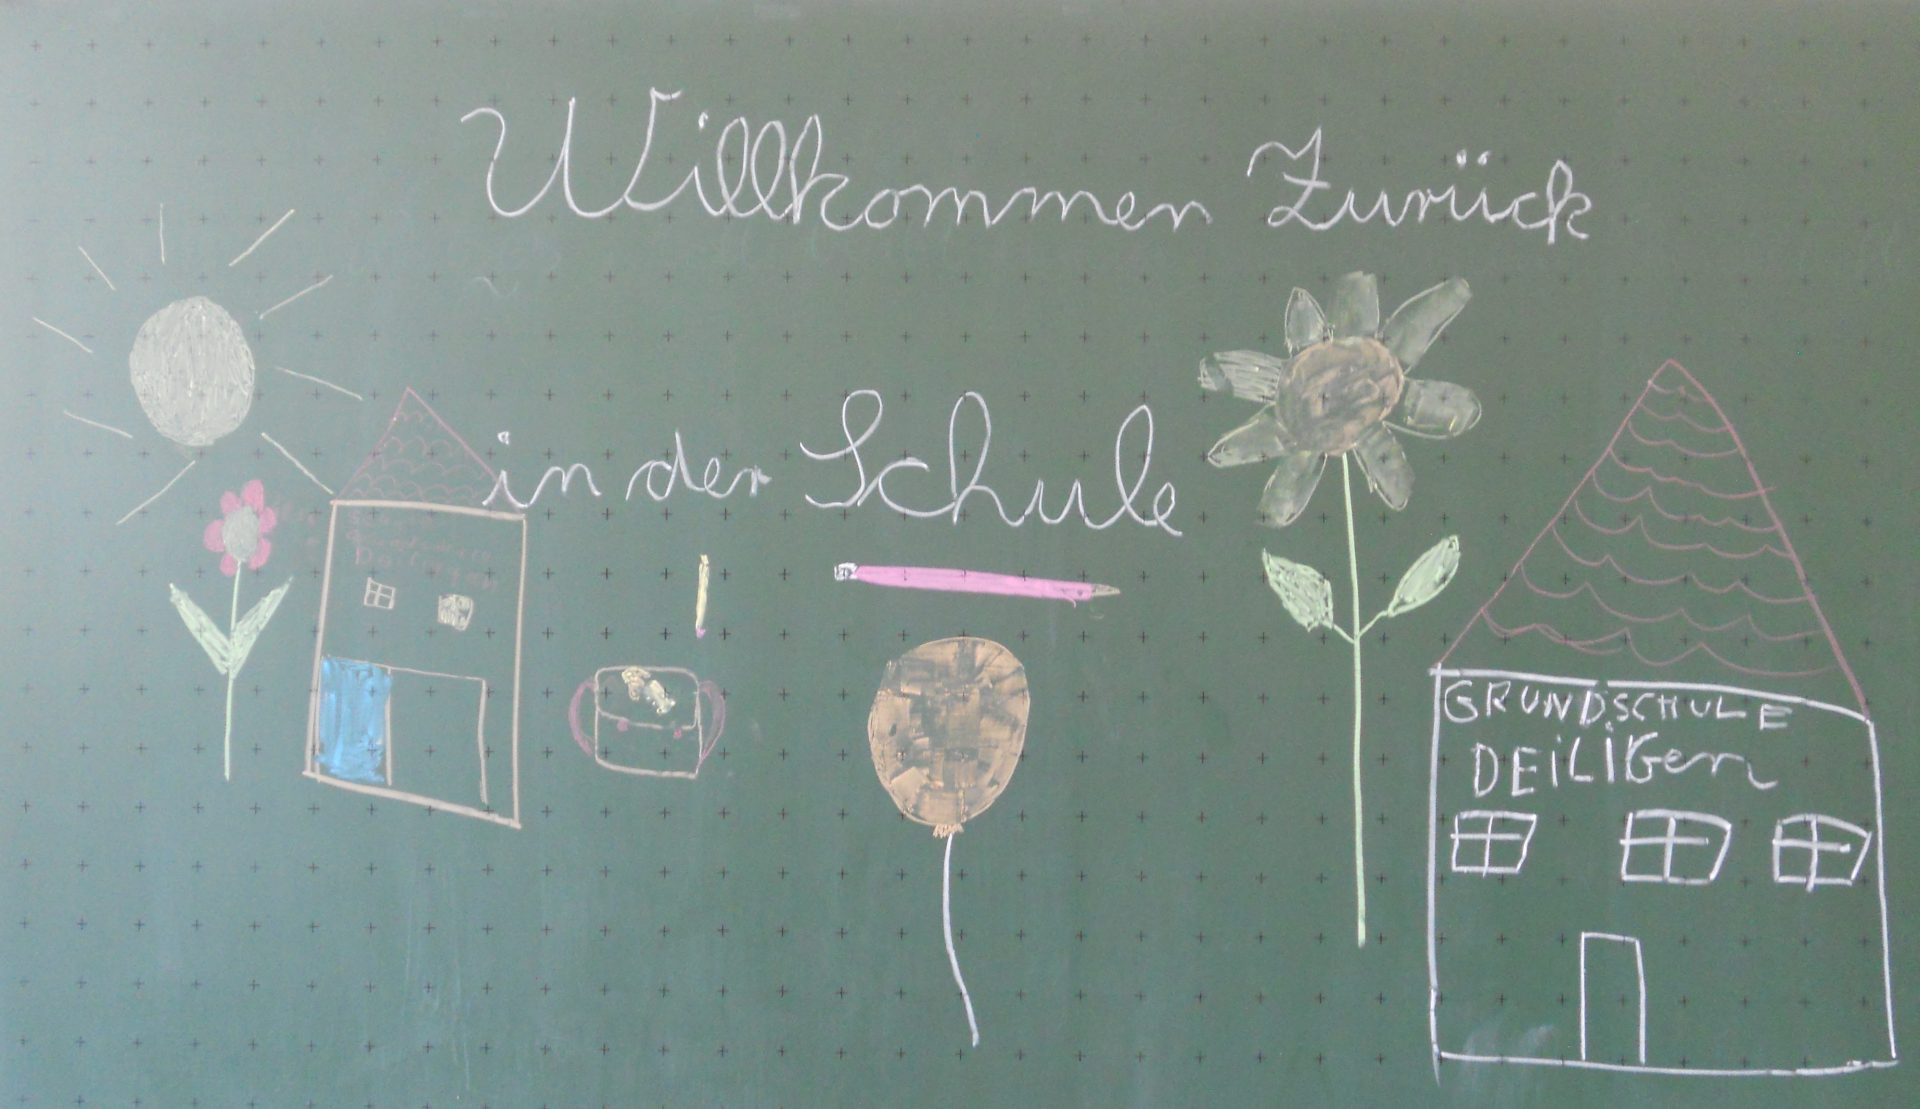 Willkommen Zurück
in der Schule
GRUNDSCHULE
DEiLiGen